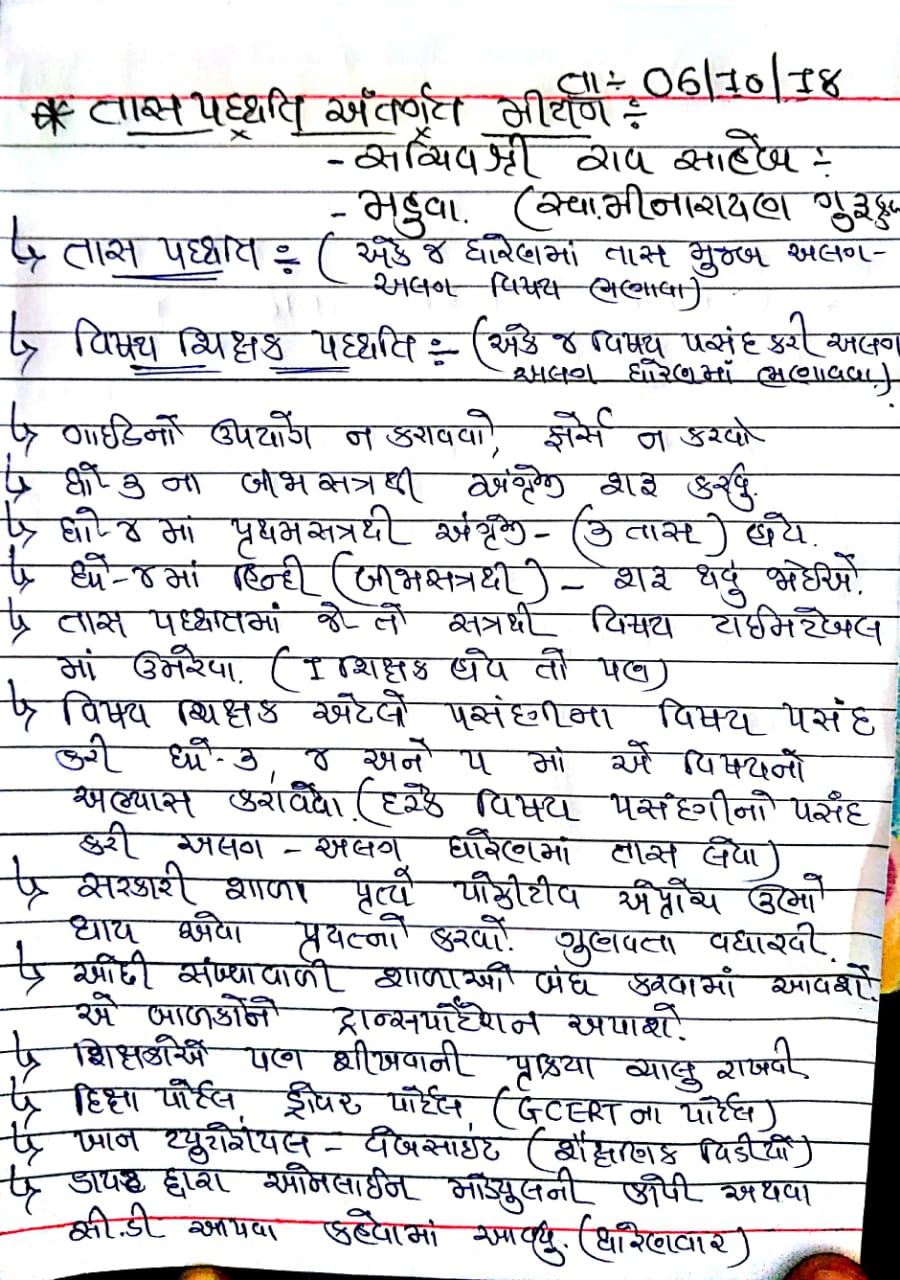 તા÷ 06/10/18
* તાસ પદ્ધતિ અંતર્ગત મીટીંગ ÷
- સચિવશ્રી રાવ સાહેબ ÷
- મહુવા. (સ્વામીનારાયણ ગુરૂકુળ
↳ તાસ પદ્ધતિ ÷ (એક જ ધોરણમાં તાસ મુજબ અલગ-
અલગ વિષય ભણાવવા)
↳ વિષય શિક્ષક પદ્ધતિ ÷ (એક જ વિષય પસંદ કરી અલગ
અલગ ધોરણમાં ભણાવવા.)
↳ ગાઈડનો ઉપયોગ ન કરાવવો, ફોર્સ ન કરવો
↳ ધો-૩ ના બીજા સત્રથી અંગ્રેજી શરૂ કરવું.
↳ ધો-૪ માં પ્રથમસત્રથી અંગ્રેજી - (૩ તાસ) હોય.
↳ ધો-૪માં હિન્દી (બીજાસત્રથી) - શરૂ થવું જોઈએ.
↳ તાસ પદ્ધતિમાં જે તે સત્રથી વિષય ટાઈમટેબલ
માં ઉમેરવા. (1 શિક્ષક હોય તો પણ)
↳ વિષય શિક્ષક એટલે પસંદગીના વિષય પસંદ
કરી ધો-૩, ૪ અને ૫ માં એ વિષયનો
અભ્યાસ કરાવવો. (દરેક વિષય પસંદગીનો પસંદ
કરી અલગ - અલગ ધોરણમાં તાસ લેવા)
↳ સરકારી શાળા પ્રત્યે પોઝીટીવ એપ્રોચ ઉભો
થાય એવા પ્રયત્નો કરવો. ગુણવતા વધારવી.
↳ ઓછી સંખ્યાવાળી શાળાઓ બંધ કરવામાં આવશે.
એ બાળકોને ટ્રાન્સપોર્ટેશન અપાશે.
↳ શિક્ષકોએ પણ શીખવાની પ્રક્રિયા ચાલુ રાખવી.
↳ દિક્ષા પોર્ટલ, પોર્ટલ, (GCERT ના પોર્ટલ)
↳ ખાન ટ્યુટોરીયલ - વેબસાઈટ (શૈક્ષણિક વિડીયો)
↳ ડાયટ દ્વારા ઓનલાઈન મોડ્યુલની કોપી અથવા
સી.ડી આપવા કહેવામાં આવ્યું. (ધોરણવાર)